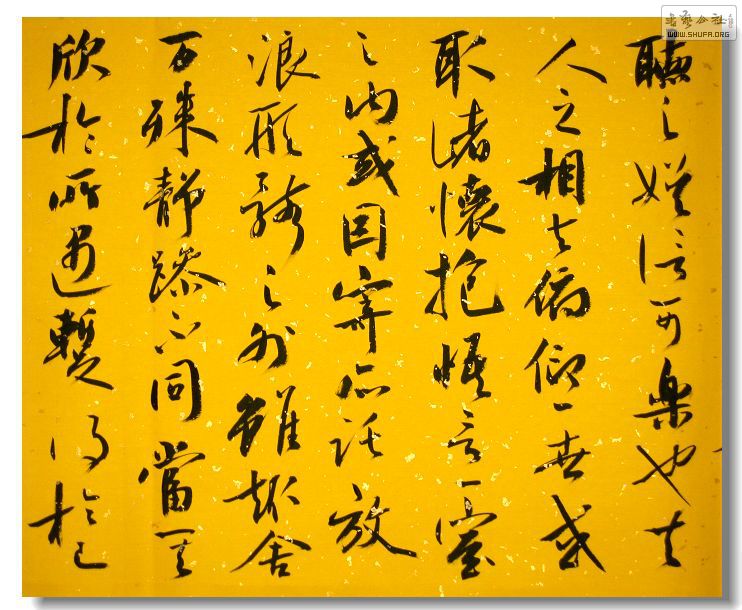 聽之娛信可樂也夫
人之相与俯仰一世或
取諸懷抱悟言一室
之內或因寄所託放
浪形骸之外雖趣舍
万殊靜躁不同當其
欣於所遇暫得於己
書藝公社
WWW.SHUFA.ORG